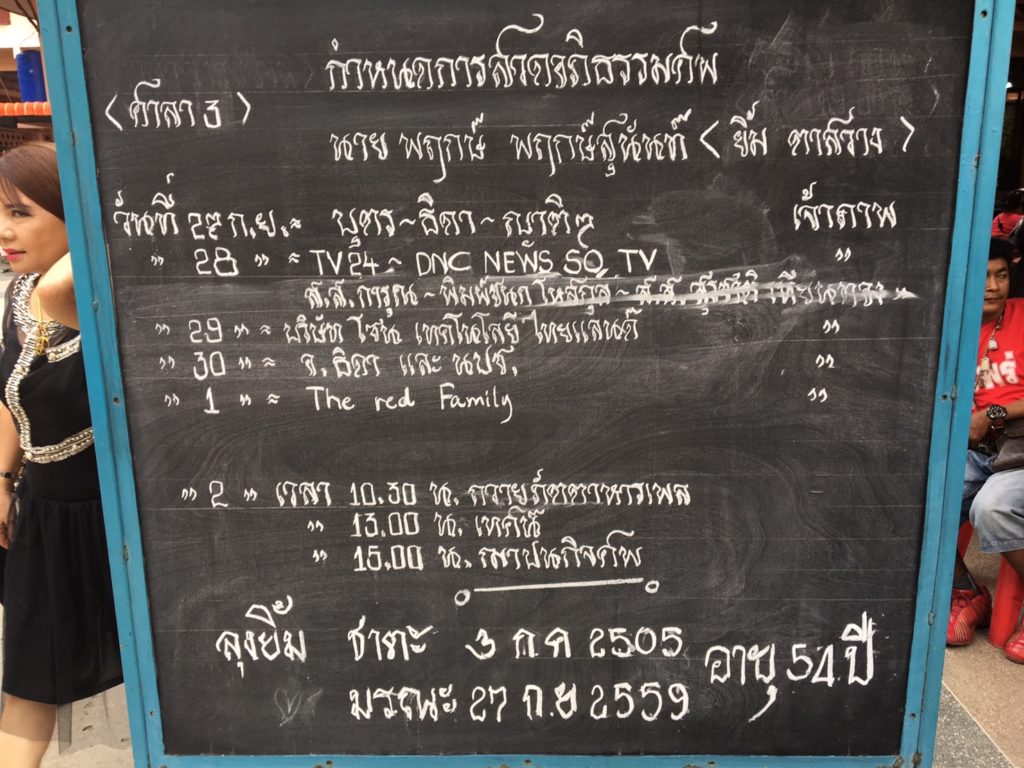 กำหนดการสวดพระอภิธรรมศพ
< ศาลา 3 >
นาย พฤกษ์ พฤกษ์สุนันท์ < ยิ้ม ตาสว่าง >
วันที่ 27 ก.ย. = บุตร ~ ธิดา ~ ญาติๆ เจ้าภาพ
" 28 " = TV 24 ~ DNC NEWS SO TV "
ส.ส. การุณ ~ พิมพ์ชนา โหสกุล ~ ส.ส. "
" 29 " = บริษัท โซน เทคโนโลยี ไทยแลนด์ "
" 30 " = อ. ธิดา และ นปช. "
" 1 " = The red Family "
" 2 " เวลา 10.30 น. ถวายภัตตาหารเพล
" 13.00 น. เทศน์
" 15.00 น. ฌาปนกิจศพ
ลุงยิ้ม ชาตะ 3 ก ค 2505 อายุ 54 ปี
มรณะ 27 ก.ย 2559